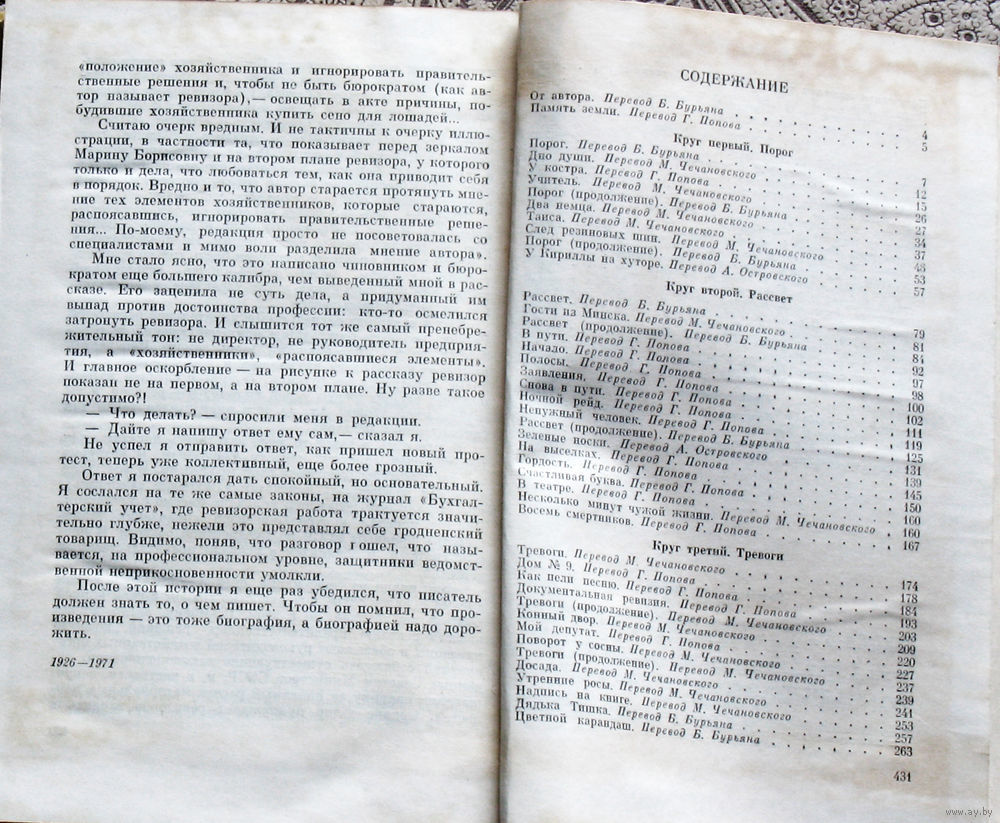 «положение» хозяйственника и игнорировать правитель-
ственные решения и, чтобы не быть бюрократом (как ав-
тор называет ревизора),— освещать в акте причины, по-
будившие хозяйственника купить сено для лошадей...
Считаю очерк вредным. И не тактичны к очерку иллю-
страции, в частности та, что показывает перед зеркалом
Марину Борисовну и на втором плане ревизора, у которого
только и дела, что любоваться тем, как она приводит себя
в порядок. Вредно и то, что автор старается протянуть мне-
ние тех элементов хозяйственников, которые стараются,
распоясавшись, игнорировать правительственные реше-
ния... По-моему, редакция просто не посоветовалась со
специалистами и мимо воли разделила мнение автора».
Мне стало ясно, что это написано чиновником и бюро-
кратом еще большего калибра, чем выведенный мной в рас-
сказе. Его зацепила не суть дела, а придуманный им
выпад против достоинства профессии: кто-то осмелился
затронуть ревизора. И слышится тот же самый пренебре-
жительный тон: не директор, не руководитель предприя-
тия, а «хозяйственники», «распоясавшиеся элементы».
И главное оскорбление — на рисунке к рассказу ревизор
показан не на первом, а на втором плане. Ну разве такое
допустимо?!
— Что делать? — спросили меня в редакции.
— Дайте я напишу ответ ему сам,— сказал я.
Не успел я отправить ответ, как пришел новый про-
тест, теперь уже коллективный, еще более грозный.
Ответ я постарался дать спокойный, но основательный.
Я сослался на те же самые законы, на журнал «Бухгал-
терский учет», где ревизорская работа трактуется значи-
тельно глубже, нежели это представлял себе гродненский
товарищ. Видимо, поняв, что разговор пошел, что назы-
вается, на профессиональном уровне, защитники ведомст-
венной неприкосновенности умолкли.
После этой истории я еще раз убедился, что писатель
должен знать то, о чем пишет. Чтобы он помнил, что про-
изведения — это тоже биография, а биографией надо доро-
жить.
1926—1971
СОДЕРЖАНИЕ
От автора. Перевод Б. Бурьяна . . . 4
Память земли. Перевод Г. Попова . . . 5
Круг первый. Порог
Порог. Перевод Б. Бурьяна . . . 7
Дно души. Перевод М. Чечановского . . . 12
У костра. Перевод Г. Попова . . . 15
Учитель. Перевод М. Чечановского . . . 26
Порог (продолжение). Перевод Б. Бурьяна . . . 27
Два немца. Перевод М. Чечановского . . . 34
Таиса. Перевод М. Чечановского . . . 37
След резиновых шин. Перевод М. Чечановского . . . 48
Порог (продолжение). Перевод Б. Бурьяна . . . 53
У Кириллы на хуторе. Перевод А. Островского . . . 57
Круг второй. Рассвет
Рассвет. Перевод Б. Бурьяна . . . 79
Гости из Минска. Перевод М. Чечановского . . . 81
Рассвет (продолжение). Перевод Б. Бурьяна . . . 84
В пути. Перевод Г. Попова . . . 92
Начало. Перевод Г. Попова . . . 97
Полосы. Перевод Г. Попова . . . 98
Заявления. Перевод Г. Попова . . . 100
Снова в пути. Перевод Г. Попова . . . 102
Ночной рейд. Перевод Г. Попова . . . 111
Ненужный человек. Перевод Г. Попова . . . 119
Рассвет (продолжение). Перевод Б. Бурьяна . . . 125
Зеленые носки. Перевод А. Островского . . . 131
На выселках. Перевод Г. Попова . . . 139
Гордость. Перевод Г. Попова . . . 145
Счастливая буква. Перевод Г. Попова . . . 150
В театре. Перевод Г. Попова . . . 160
Несколько минут чужой жизни. Перевод М. Чечановского . . . 160
Восемь смертников. Перевод Г. Попова . . . 167
Круг третий. Тревоги
Тревоги. Перевод М. Чечановского . . . 174
Дом № 9. Перевод Г. Попова . . . 178
Как пели песню. Перевод Г. Попова . . . 184
Документальная ревизия. Перевод Г. Попова . . . 193
Тревоги (продолжение). Перевод М. Чечановского . . . 203
Конный двор. Перевод М. Чечановского . . . 209
Мой депутат. Перевод Г. Попова . . . 220
Поворот у сосны. Перевод М. Чечановского . . . 227
Тревоги (продолжение). Перевод М. Чечановского . . . 237
Досада. Перевод М. Чечановского . . . 239
Утренние росы. Перевод М. Чечановского . . . 241
Надпись на книге. Перевод М. Чечановского . . . 253
Дядька Тишка. Перевод Б. Бурьяна . . . 257
Цветной карандаш. Перевод Б. Бурьяна . . . 263
431
www.ay.by